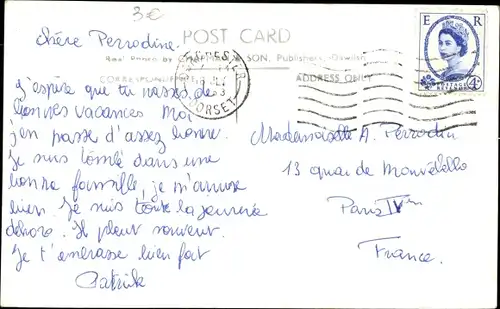 3€
POST CARD
Chère Perrodine.
Real Photo by SON, Publishers, Oswestry
CORRESPONDENCE
ADDRESS ONLY
DORSET
E R
POSTAGE
4D
J'espère que tu passes de
bonnes vacances Moi
j'en passe d'assez bonne.
Je suis tombé dans une
bonne famille, je m'amuse
bien. Je suis toute la journée
dehors. Il pleut souvent.
Je t'embrasse bien fort
Patrick
Mademoiselle A. Perrodin
13 quai de
Paris IVem
France.